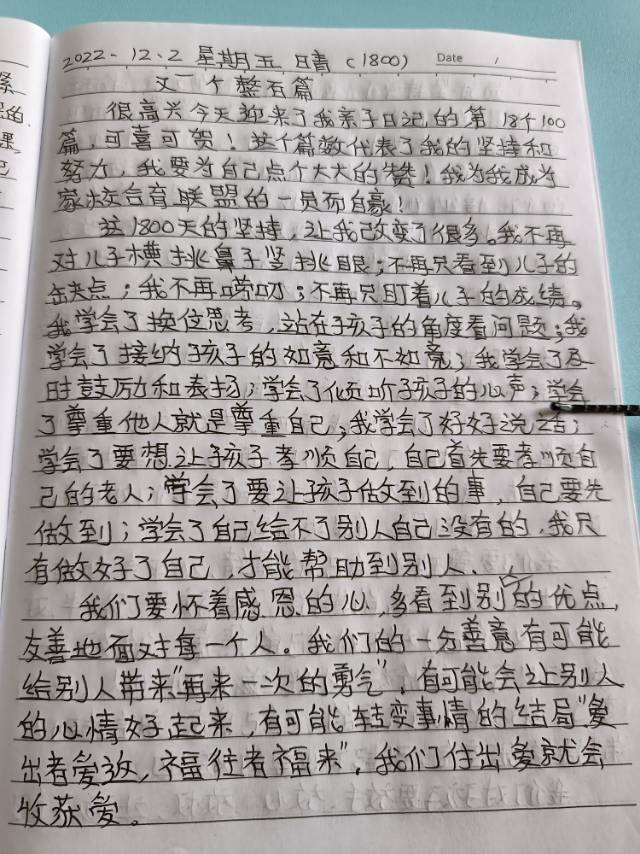 2022-12.2 星期五 晴 (1800) Date /
又一个整百篇
很高兴今天迎来了我亲子日记的第18个100
篇,可喜可贺!这个篇数代表了我的坚持和
努力,我要为自己点个大大的赞!我为我成为
家校合育联盟的一员而自豪!
这1800天的坚持,让我改变了很多。我不再
对儿子横挑鼻子竖挑眼;不再只看到儿子的
缺点;我不再唠叨;不再只盯着儿子的成绩。
我学会了换位思考,站在孩子的角度看问题;我
学会了接纳孩子的如意和不如意;我学会了及
时鼓励和表扬;学会了倾听孩子的心声;学会
了尊重他人就是尊重自己;我学会了好好说话;
学会了要想让孩子孝顺自己,自己首先要孝顺自
己的老人;学会了要让孩子做到的事,自己要先
做到;学会了自己给不了别人自己没有的,我只
有做好了自己,才能帮助到别人.
我们要怀着感恩的心,多看到别的优点,
友善地面对每一个人。我们的一分善意有可能
给别人带来"再来一次的勇气",有可能会让别人
的心情好起来,有可能转变事情的结局"爱
出者爱返,福往者福来",我们付出爱就会
收获爱。